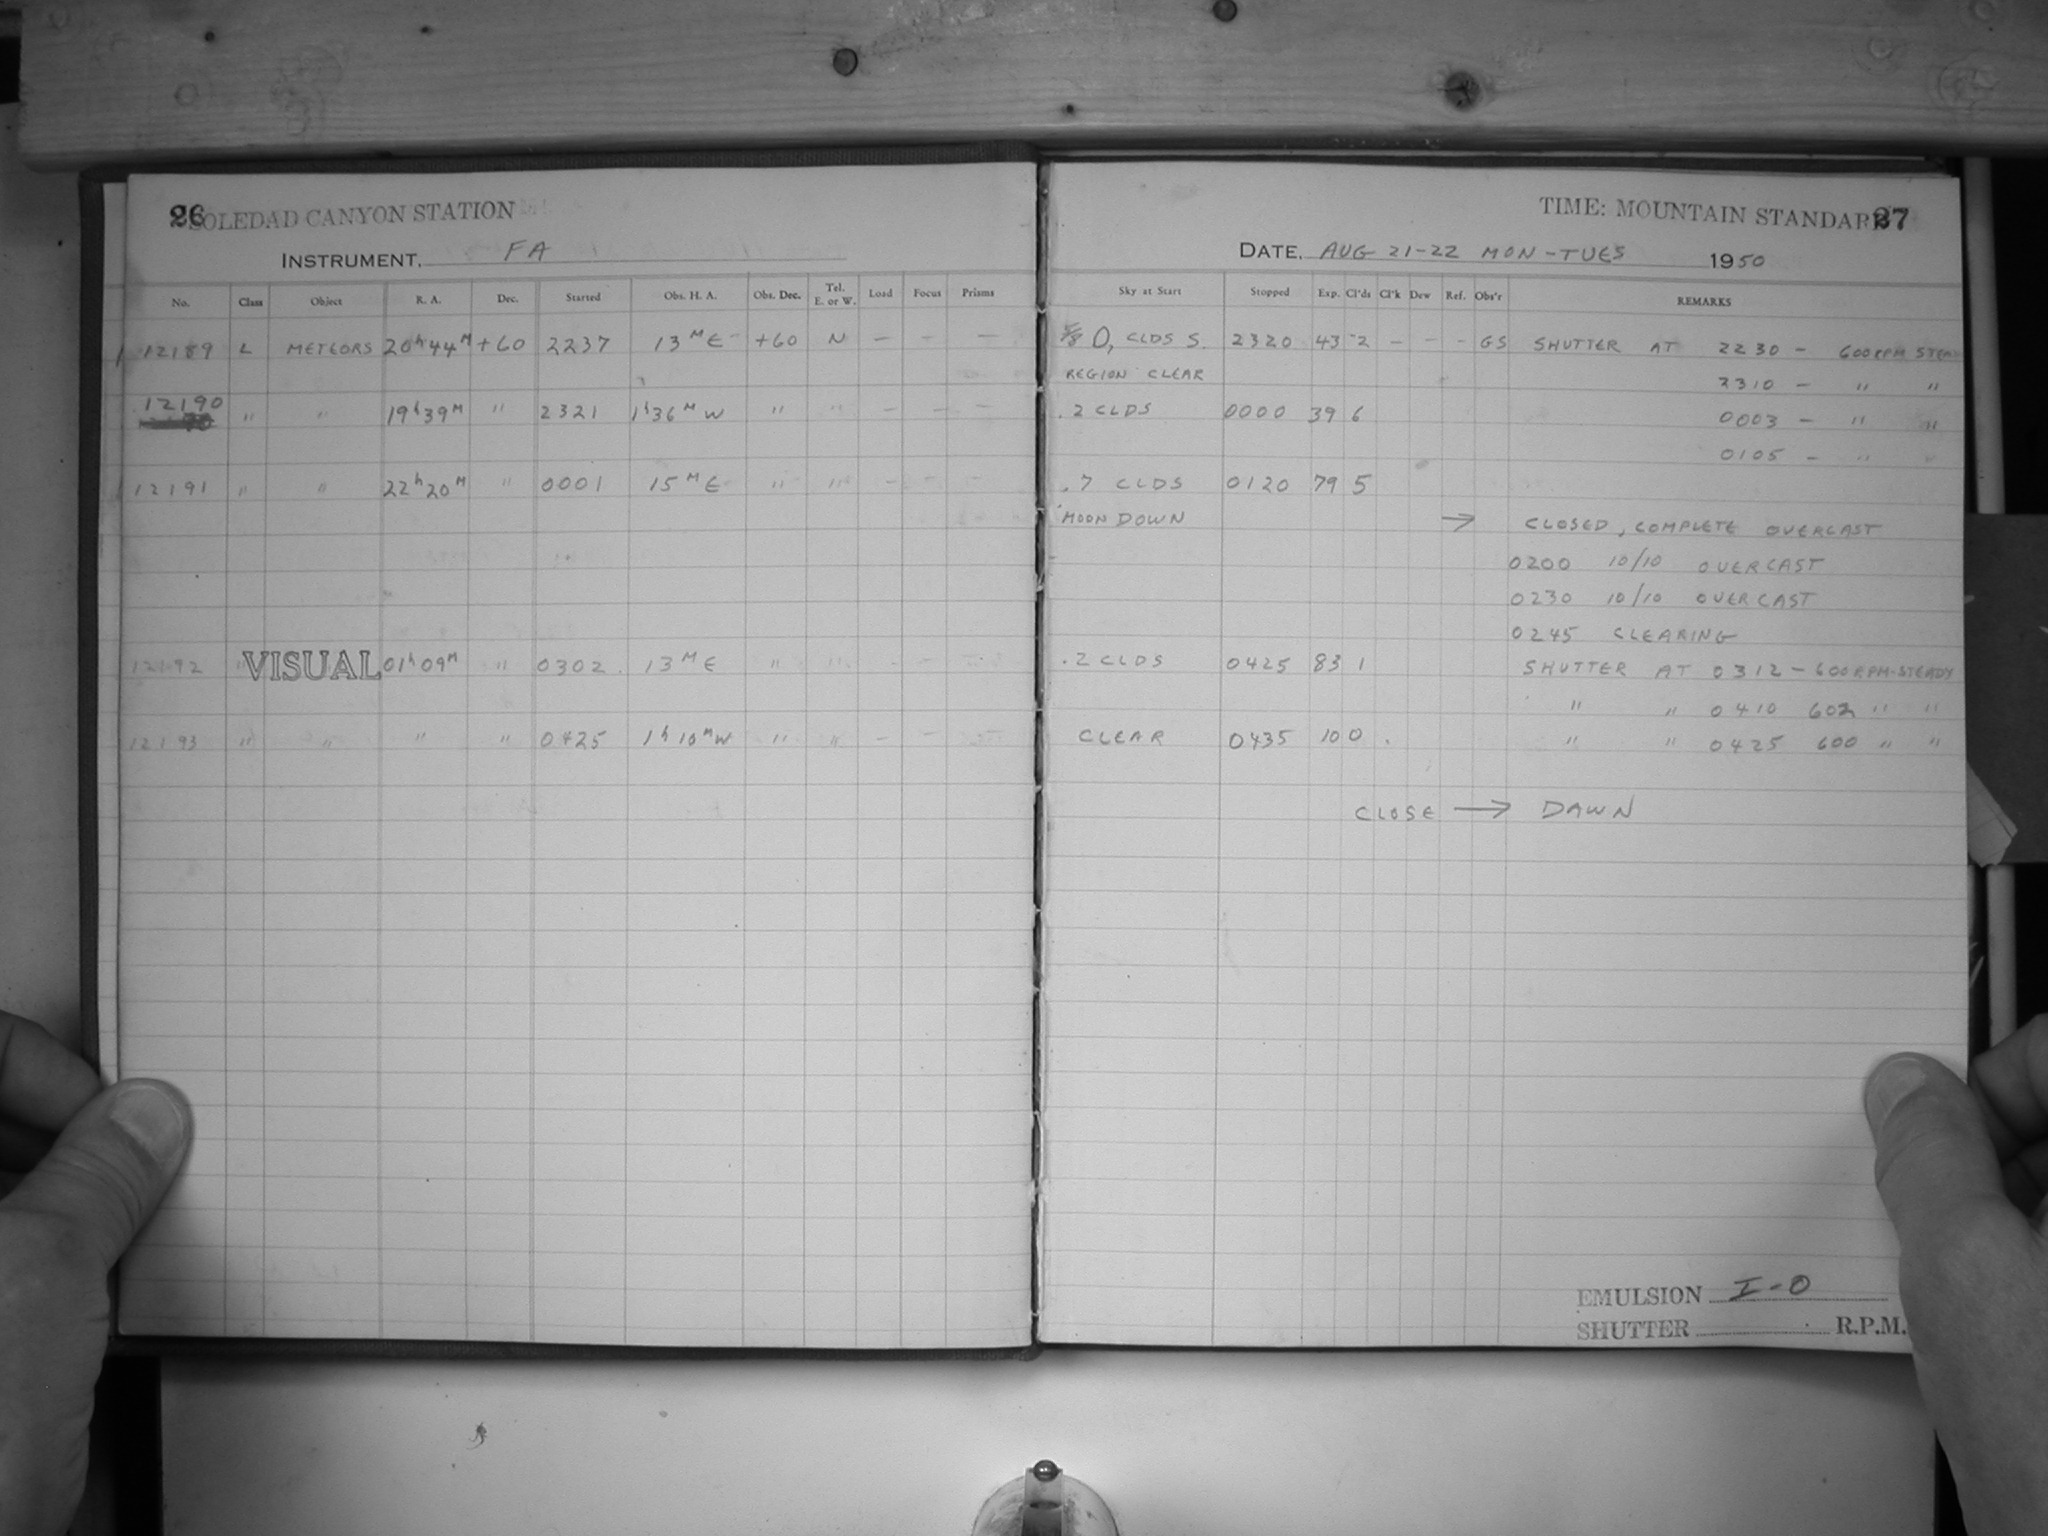 26 SOLEDAD CANYON STATION
INSTRUMENT. FA
No. Class Object R. A. Dec. Started Obs. H. A. Obs. Dec. Tel. E. or W. Load Focus Prisms
12189 L METEORS 20h44M +60 2237 13M E +60 N — — —
12190 " " 19h39M " 2321 1h36M W " " — — —
12191 " " 22h20M " 0001 15M E " " — — —
12192 " VISUAL 01h09M " 0302 13M E " " — —
12193 " " " " 0425 1h10M W " " — —
TIME: MOUNTAIN STANDARD 27
DATE. AUG 21-22 MON-TUES 1950
Sky at Start Stopped Exp. Cl'ds Cl'k Dew Ref. Obs'r REMARKS
CLDS S. 2320 43 2 — — — GS SHUTTER AT 2230 — 600RPM STEADY
REGION CLEAR 2310 — " "
.2 CLDS 0000 39 6 0003 — " "
0105 — " "
.7 CLDS 0120 79 5
MOON DOWN → CLOSED, COMPLETE OVERCAST
0200 10/10 OVERCAST
0230 10/10 OVERCAST
0245 CLEARING
.2 CLDS 0425 83 1 SHUTTER AT 0312 — 600RPM-STEADY
" " 0410 602 " "
CLEAR 0435 10 0 " " 0425 600 " "
CLOSE → DAWN
EMULSION I-O
SHUTTER R.P.M.